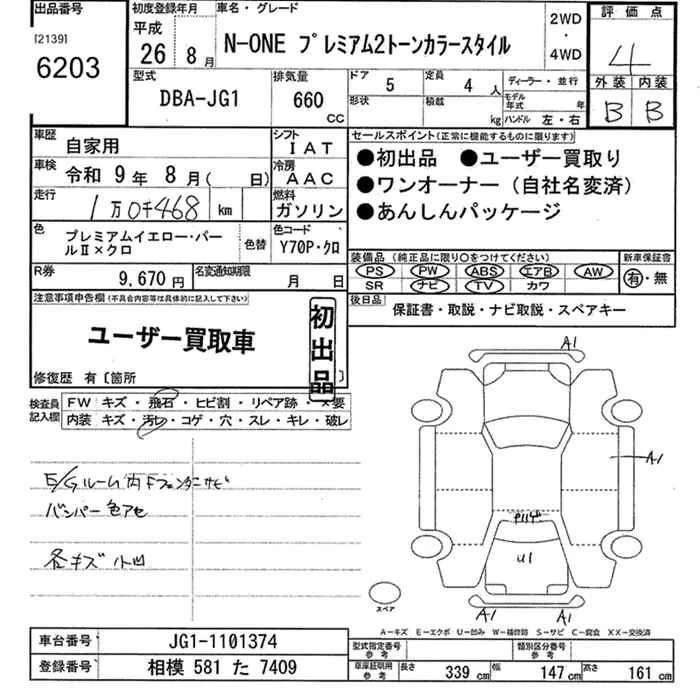 出品番号
[2139]
6203
初度登録年月
平成
26 8月
車名・グレード
N-ONE プレミアム2トーンカラースタイル
2WD
・
4WD
評価点
4
外装 内装
B B
型式
DBA-JG1
排気量
660
CC
ドア 5
定員 4 人
ディーラー・並行
形状
積載 kg
モデル年式 年
ハンドル 左・右
車歴 自家用
シフト IAT
車検 令和 9年 8月( 日)
冷房 AAC
走行 1万0千468 km
燃料 ガソリン
色 プレミアムイエロー・パールⅡ×クロ
色替
色コード Y70P・クロ
R券 9,670円
名変通知期限 月 日
セールスポイント(正常に機能するものに限ります)
●初出品 ●ユーザー買取り
●ワンオーナー(自社名変済)
●あんしんパッケージ
装備品(純正品に限り〇をつけてください)
PS PW ABS エアB AW
SR ナビ TV カワ
新車保証書
有・無
後日品 保証書・取説・ナビ取説・スペアキー
注意事項申告欄(不具合内容等は具体的に記入して下さい)
ユーザー買取車
初出品
修復歴 有〔箇所 〕
検査員記入欄
FW キズ・飛石・ヒビ割・リペア跡・×要
内装 キズ・汚れ・コゲ・穴・スレ・キレ・破レ
E/Gルーム内Fフェンダーサビ
バンパー色アセ
各キズ小凹
A1
A1
U1
A1 A1
スペア
A―キズ E―エクボ U―凹み W―補修跡 S―サビ C―腐食 XX―交換済
車台番号 JG1-1101374
登録番号 相模 581 た 7409
型式指定番号参考
類別区分番号参考
車庫証明用参考
長さ 339cm
幅 147cm
高さ 161cm